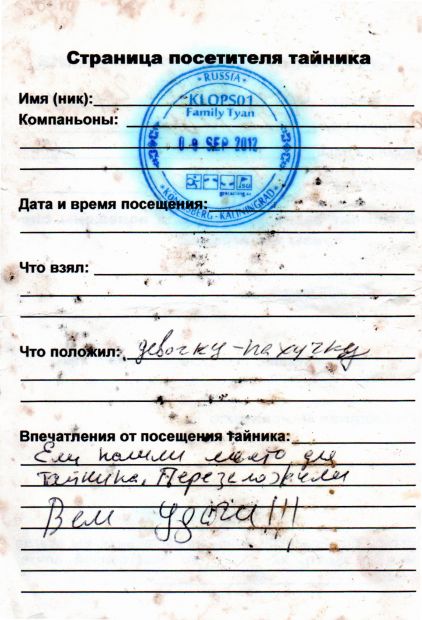 Страница посетителя тайника
RUSSIA
KLOPS01
Family Tyan
Имя (ник):
Компаньоны:
0 9 SEP 2012
KONIGSBERG - KALININGRAD
Дата и время посещения:
Что взял:
Что положил: девочку-пахучку
Впечатления от посещения тайника:
Ели нашли место для
тайника. Перезаложили
Вем удачи!!!